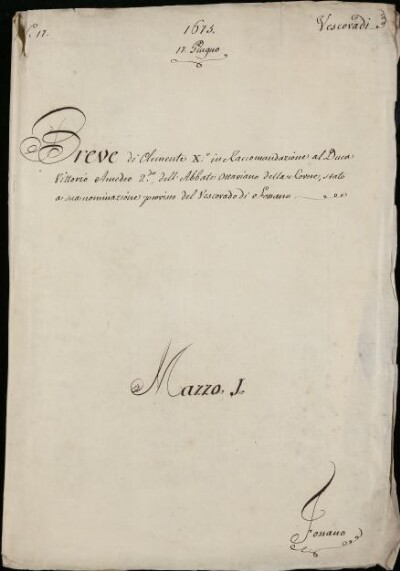 N.° 17.
1675.
Vescovadi
17. Giugno
Breve di Clemente X.° in Raccomandazione al Duca
Vittorio Amedeo 2.do dell' Abbate Ottaviano della Rovere, stato
a sua nominazione provisto del Vescovado di Fossano
Mazzo. I.
Fossano